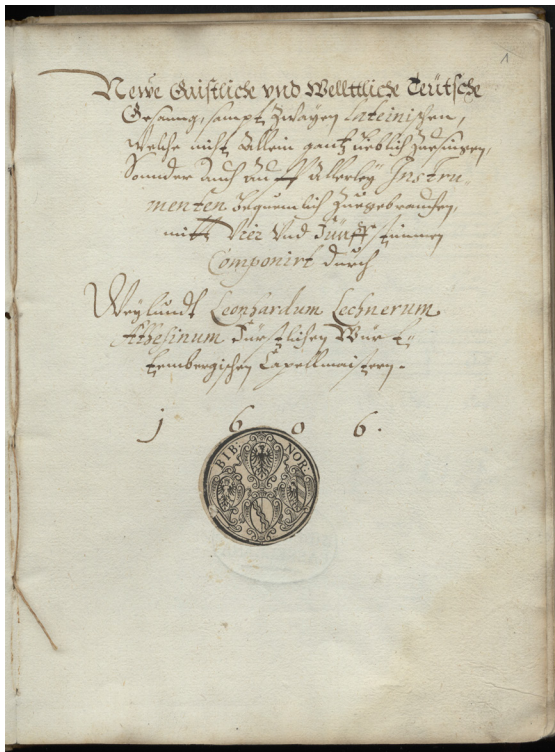 1
Newe Gaistliche vnd Wellttliche Teütsche
Gesanng, sampt zwayen Lateinischen,
Welche nicht Allein gantz lieblich zuesingen,
Sonnder Auch auff Allerley Instru-
menten bequemlich zuegebrauchen,
mitt Vier Vnd Fünff stimmen
Componirt durch
Weylundt Leonhardum Lechnerum
Athesinum Fürstlichen Würt-
tembergischen Capellmaistern.
1 6 0 6.
BIB: NOR: